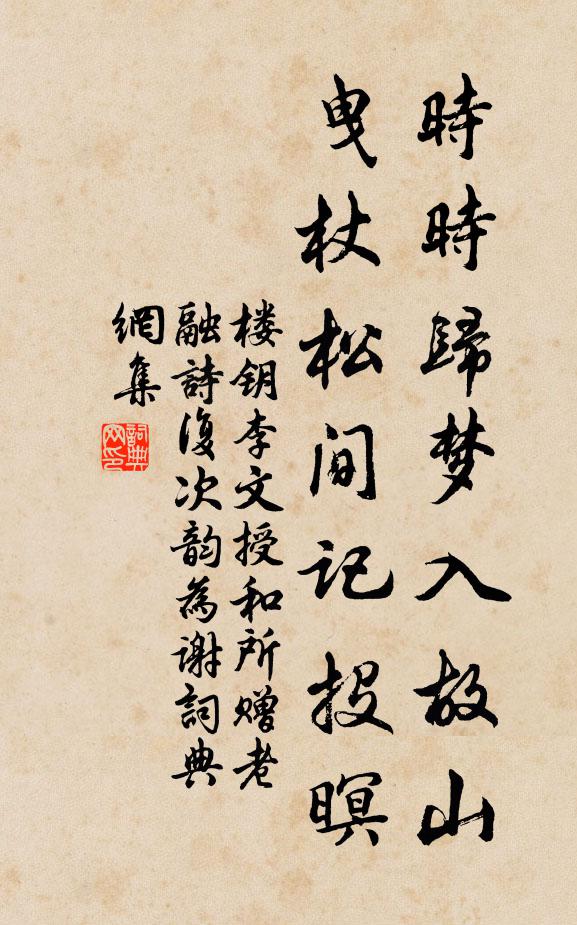 時時歸梦入故山
曳杖松间记投暝
楼钥李文授和所赠老
融詩復次韵為谢詞典
網集
詞典
网印